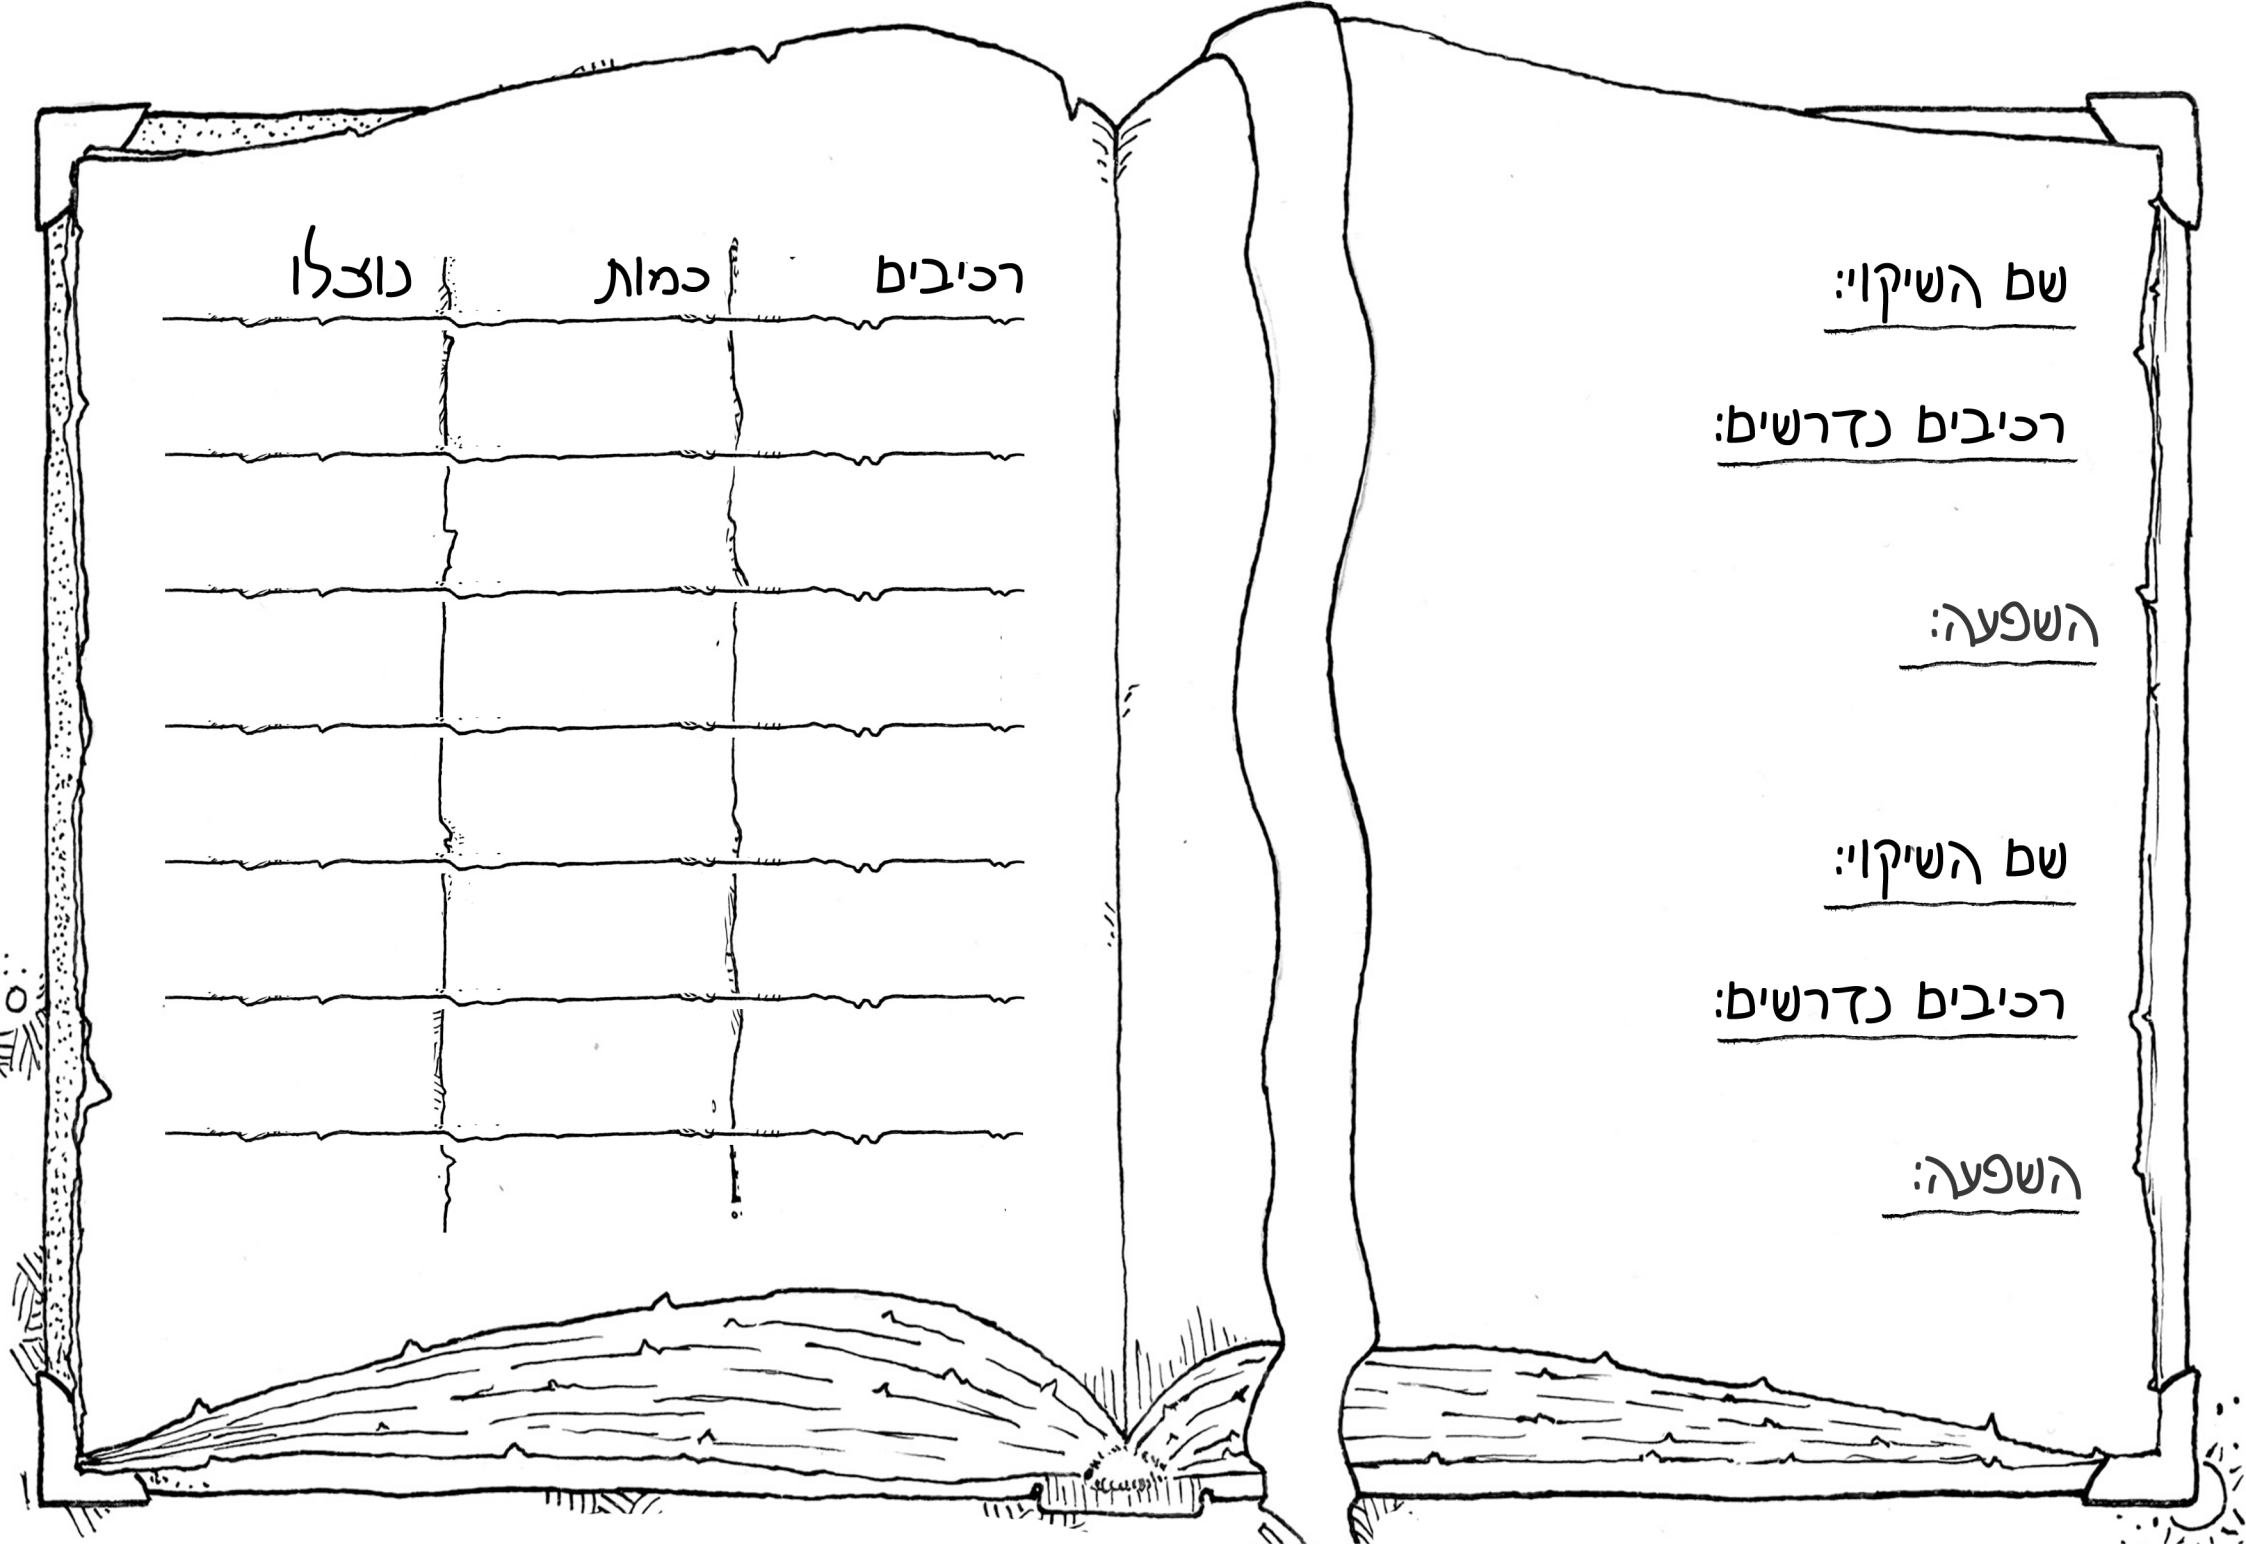 שם השיקוי:
רכיבים נדרשים:
השפעה:
שם השיקוי:
רכיבים נדרשים:
השפעה:
רכיבים כמות נוצלו